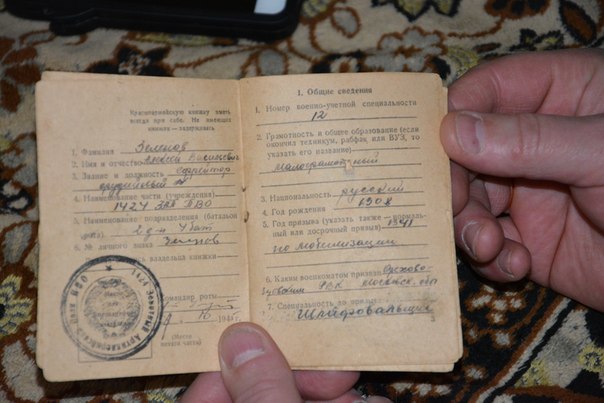 Красноармейскую книжку иметь
всегда при себе. Не имеющих
книжек — задерживать
1. Фамилия Зеленов
2. Имя и отчество Алексей Васильевич
3. Звание и должность ефрейтор
орудийный
4. Наименование части (учреждения)
1424 ЗАП ПВО
5. Наименование подразделения (батальон
2 д-н 4 бат
6. № личного знака
владельца книжки
командир роты
10 194
(Место
печати части)
1. Общие сведения
1. Номер военно-учетной специальности
12
2. Грамотность и общее образование (если
окончил техникум, рабфак или ВУЗ, то
указать его название)
малограмотный
3. Национальность русский
4. Год рождения 1908
5. Год призыва (указать также — нормаль-
ный или досрочный призыв) 1941
по мобилизации
6. Каким военкоматом призван Орехово-
Зуевским РВК Московск. обл
7. Специальность до призыва
Шлифовальщик